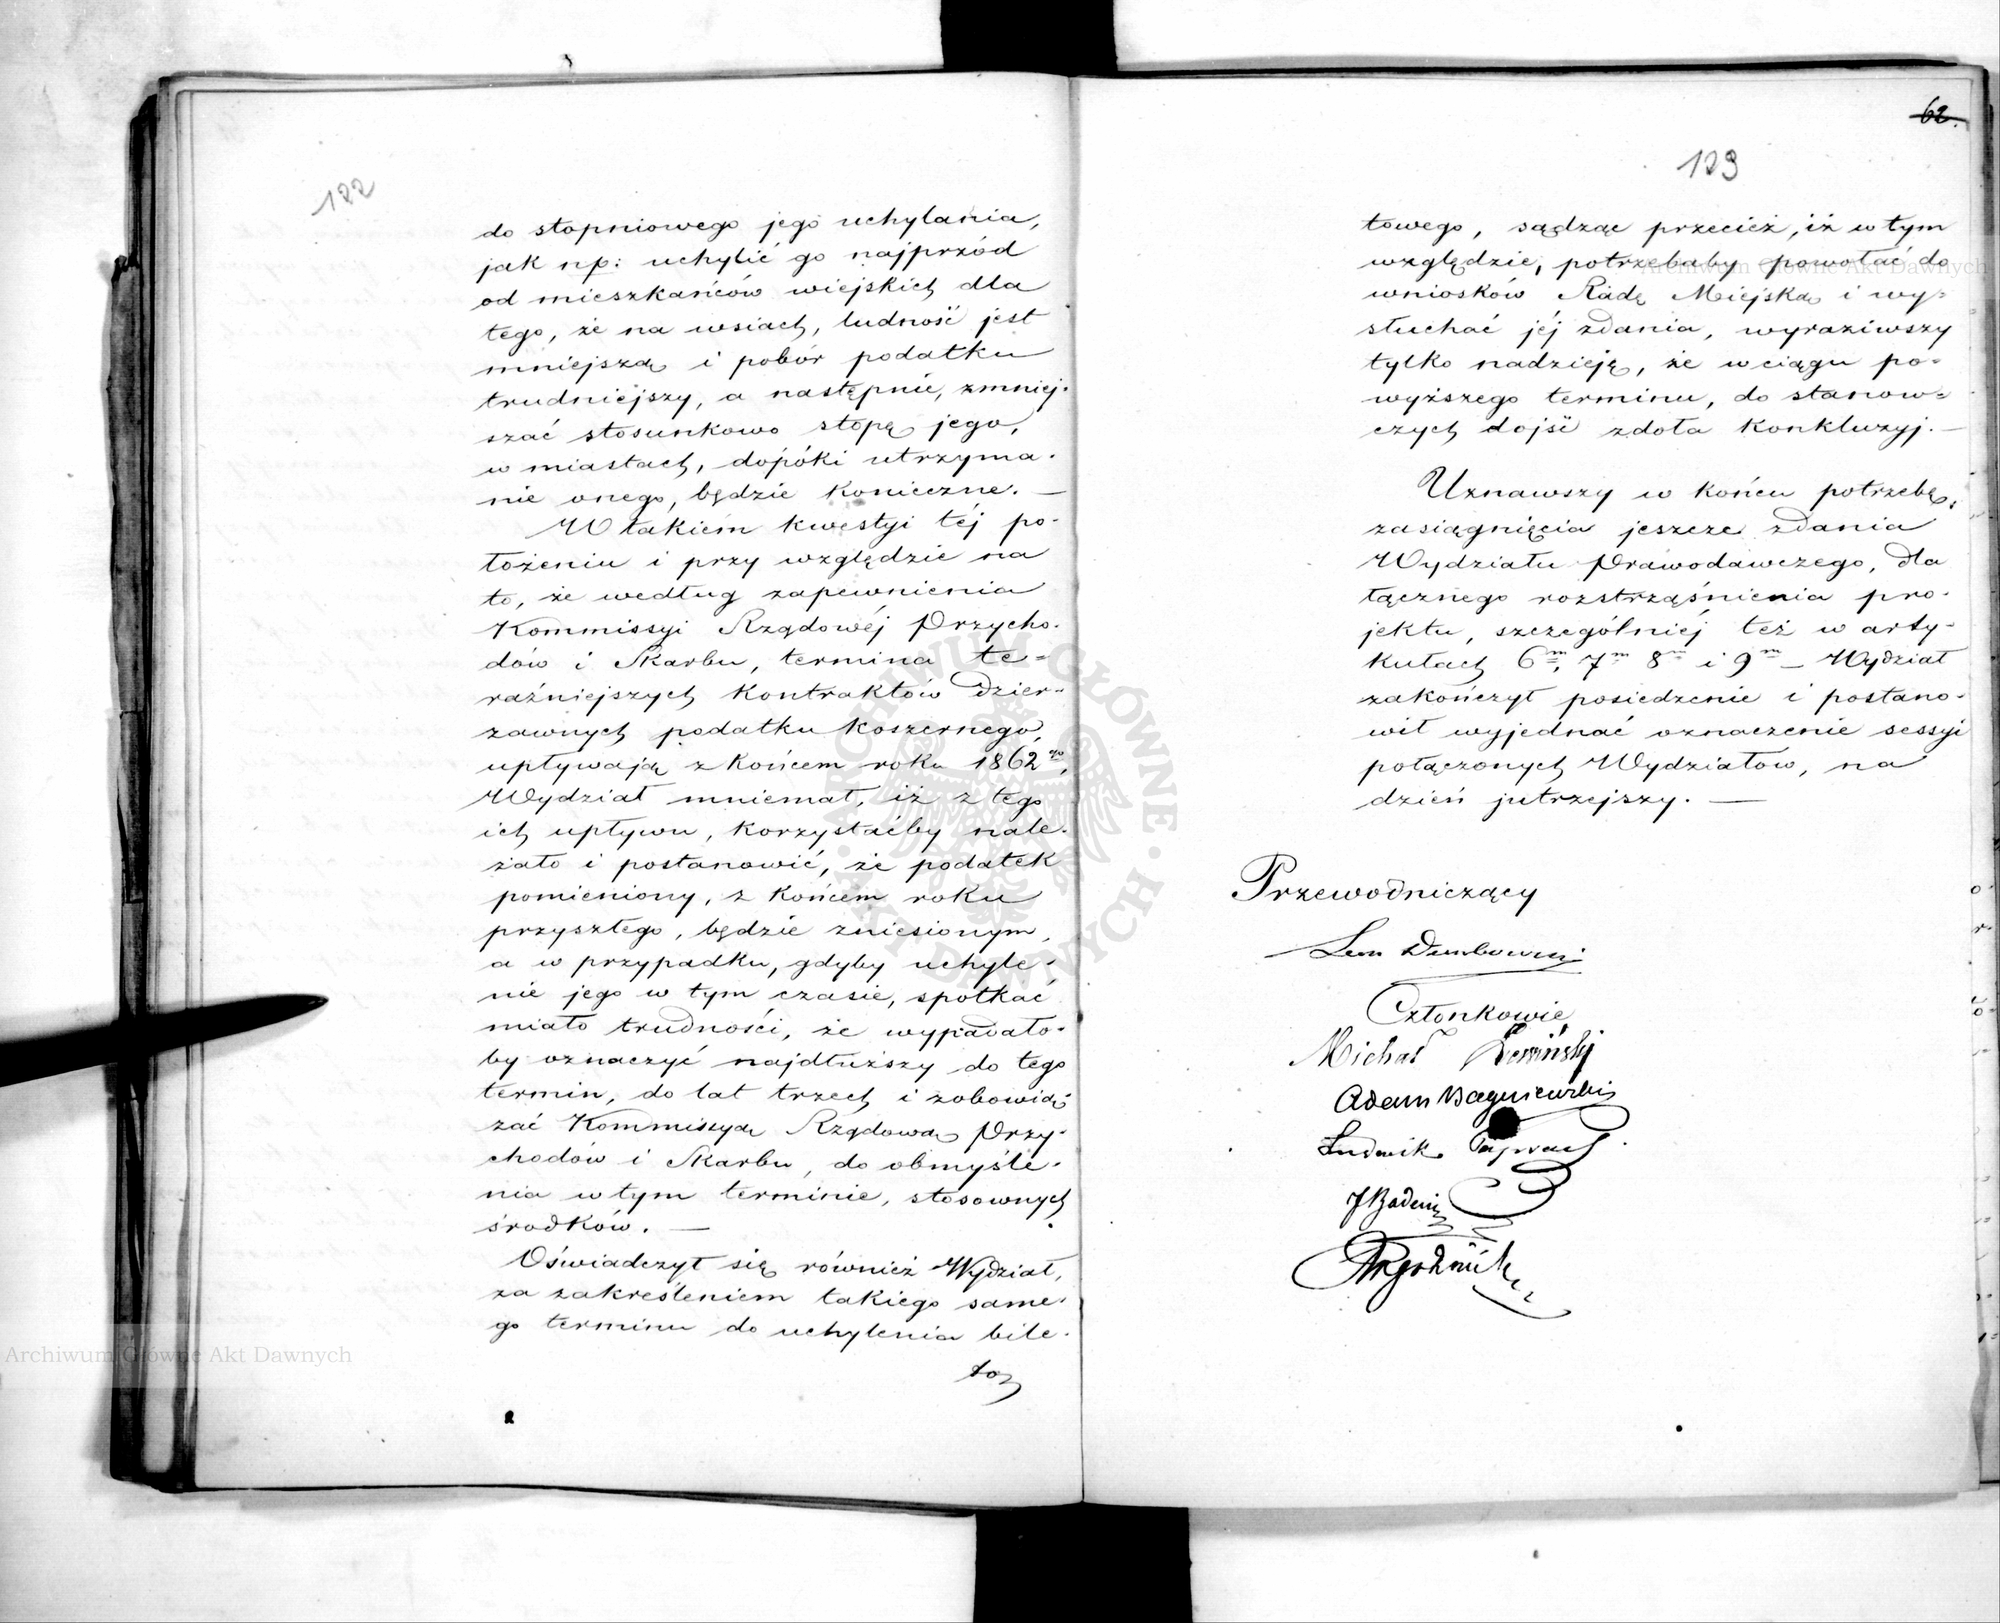 122
do stopniowego jego uchylania,
jak np: uchylić go najprzód
od mieszkańców wiejskich dla
tego, że na wsiach, ludność jest
mniejszą i pobór podatku
trudniejszy, a następnie, zmniej-
szać stosunkowo stopę jego,
w miastach, dopóki utrzyma-
nie onego, będzie konieczne. —
W takiem kwestyi téj po-
łożeniu i przy względzie na
to, że według zapewnienia
Kommissyi Rządowéj Przycho-
dów i Skarbu, termina te-
raźniejszych kontraktów dzier-
żawnych podatku koszernego,
upływają z końcem roku 1862go,
Wydział mniemał, iż z tego
ich upływu, korzystaćby nale-
żało i postanowić, że podatek
pomieniony, z końcem roku
przyszłego, będzie zniesionym,
a w przypadku, gdyby uchyle-
nie jego w tym czasie, spotkać
miało trudności, że wypadało-
by oznaczyć najdłuższy do tego
termin, do lat trzech i zobowią-
zać Kommissyą Rządową Przy-
chodów i Skarbu, do obmyśle-
nia w tym terminie, stosownych
środków. —
Oświadczył się również Wydział,
za zakreśleniem takiego same-
go terminu do uchylenia bile-
to
62.
123
towego, sądząc przecież, iż w tym
względzie, potrzebaby powołać do
wniosków Radę Miejską i wy-
słuchać jéj zdania, wyraziwszy
tylko nadzieję, że w ciągu po-
wyższego terminu, do stanow-
czych dojść zdoła konkluzyj. —
Uznawszy w końcu potrzebę,
zasiągnięcia jeszcze zdania
Wydziału Prawodawczego, dla
łącznego rozstrząśnienia pro-
jektu, szczególniéj też w arty-
kułach 6m, 7m 8m i 9m — Wydział
zakończył posiedzenie i postano-
wił wyjednać oznaczenie sessyi
połączonych Wydziałów, na
dzień jutrzejszy. —
Przewodniczący
Leon Dembowski
Członkowie
Michał
Adam Bagniewski
Ludwik
J Badeni
Archiwum Główne Akt Dawnych
Archiwum Główne Akt Dawnych
ARCHIWUM GŁÓWNE AKT DAWNYCH